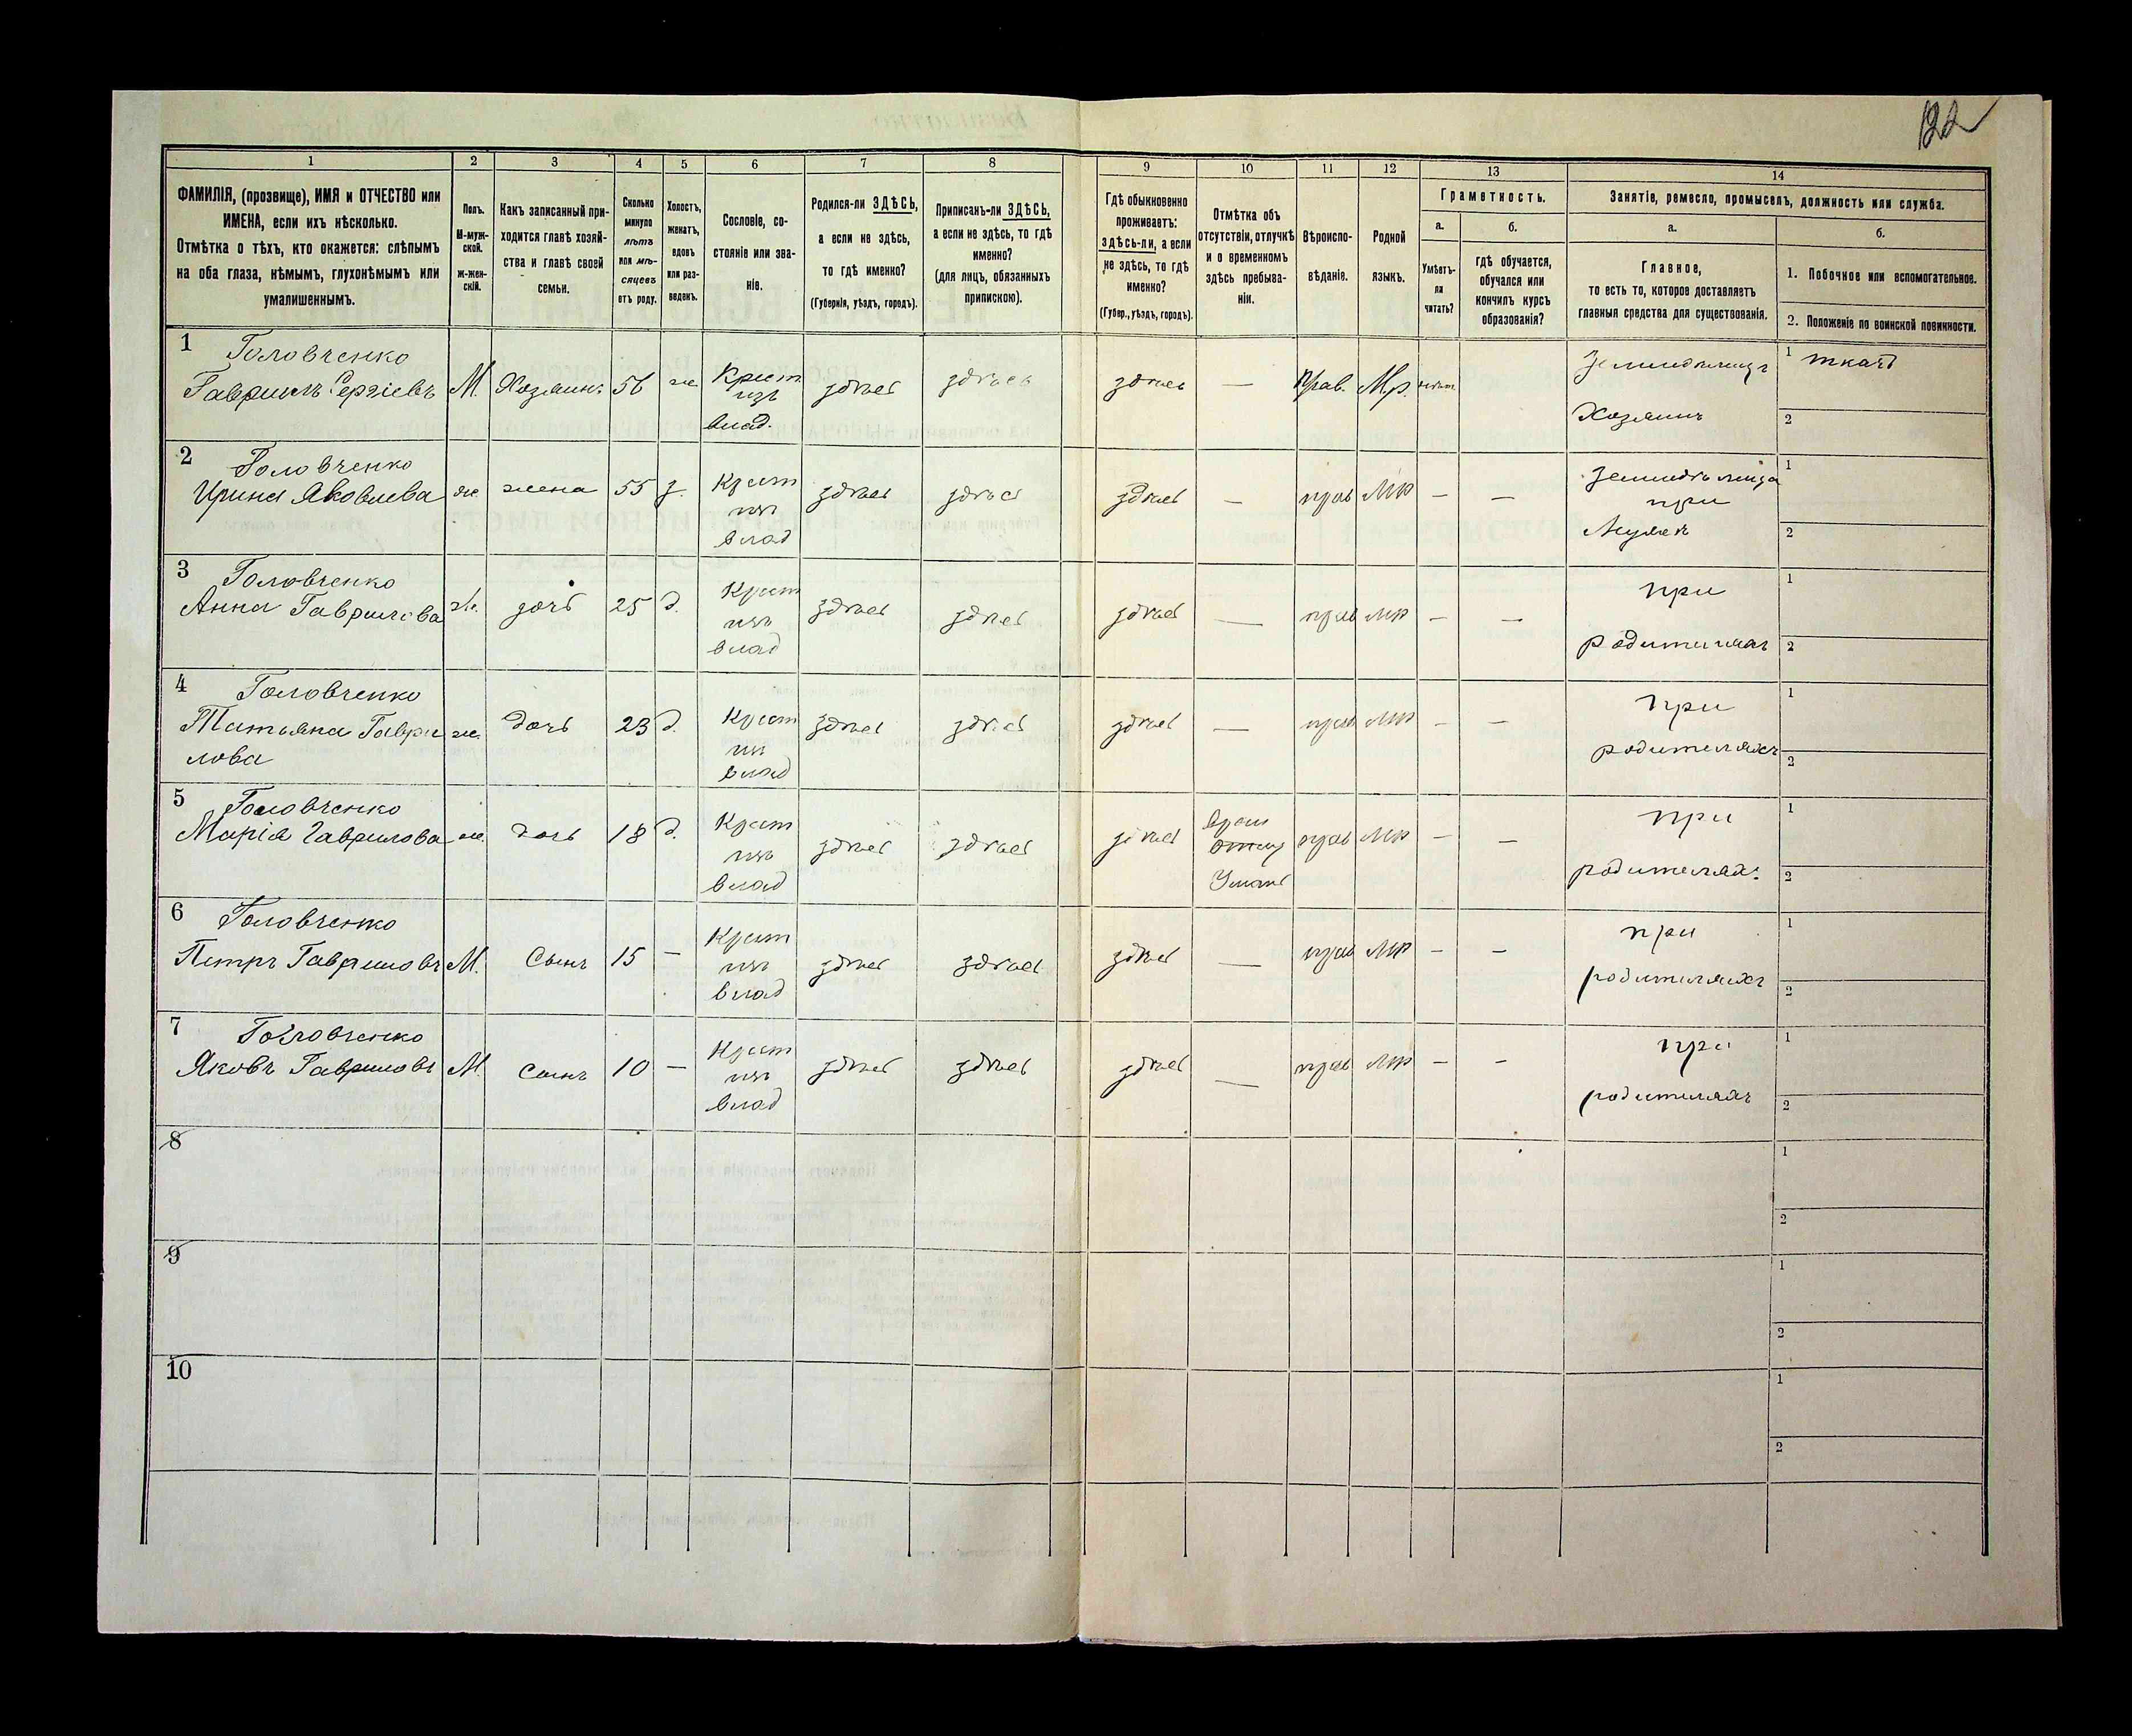 122
1 2 3 4 5 6 7 8 9 10 11 12 13 14
ФАМИЛІЯ, (прозвище), ИМЯ и ОТЧЕСТВО или
ИМЕНА, если ихъ нѣсколько.
Отмѣтка о тѣхъ, кто окажется: слѣпымъ
на оба глаза, нѣмымъ, глухонѣмымъ или
умалишеннымъ.
Полъ.
М-муж-
ской.
ж-жен-
скій.
Какъ записанный при-
ходится главѣ хозяй-
ства и главѣ своей
семьи.
Сколько
минуло
лѣтъ
или мѣ-
сяцевъ
отъ роду.
Холостъ,
женатъ,
вдовъ
или раз-
веденъ.
Сословіе, со-
стояніе или зва-
ніе.
Родился-ли ЗДѢСЬ,
а если не здѣсь,
то гдѣ именно?
(Губернія, уѣздъ, городъ).
Приписанъ-ли ЗДѢСЬ,
а если не здѣсь, то гдѣ
именно?
(для лицъ, обязанныхъ
припискою).
Гдѣ обыкновенно
проживаетъ:
ЗДѢСЬ-ЛИ, а если
не здѣсь, то гдѣ
именно?
(Губер., уѣздъ, городъ).
Отмѣтка объ
отсутствіи, отлучкѣ
и о временномъ
здѣсь пребыва-
ніи.
Вѣроиспо-
вѣданіе.
Родной
языкъ.
Грамотность.
а.
Умѣетъ-
ли
читать?
б.
гдѣ обучается,
обучался или
кончилъ курсъ
образованія?
Занятіе, ремесло, промыселъ, должность или служба.
а.
Главное,
то есть то, которое доставляетъ
главныя средства для существованія.
б.
1. Побочное или вспомогательное.
2. Положеніе по воинской повинности.
1 Головченко
Гавриилъ Сергіевъ М. Хозяинъ 56 ж Крест. изъ влад. здѣсь здѣсь здѣсь — Прав. Мр.
Земледѣлецъ
Хозяинъ
1 ткачъ
2
2 Головченко
Ирина Яковлева ж. жена 55 з. Крест изъ влад здѣсь здѣсь здѣсь — прав Мр — —
при
Мужѣ
1
2
3 Головченко
Анна Гаврилова ж. дочь 25 д. Крест изъ влад здѣсь здѣсь здѣсь — прав Мр — —
при
родителяхъ
1
2
4 Головченко
Татьяна Гаври
лова ж. дочь 23 д. Крест изъ влад здѣсь здѣсь здѣсь — прав Мр — —
при
родителяхъ
1
2
5 Головченко
Марія Гаврилова ж. дочь 18 д. Крест изъ влад здѣсь здѣсь здѣсь
Умань
прав Мр — —
при
родителях.
1
2
6 Головченко
Петръ Гавриловъ М. Сынъ 15 — Крест изъ влад здѣсь здѣсь здѣсь — прав Мр — —
при
родителяхъ
1
2
7 Головченко
Яковъ Гавриловъ М. Сынъ 10 — Крест изъ влад здѣсь здѣсь здѣсь — прав Мр — —
при
родителяхъ
1
2
8
1
2
9
1
2
10
1
2